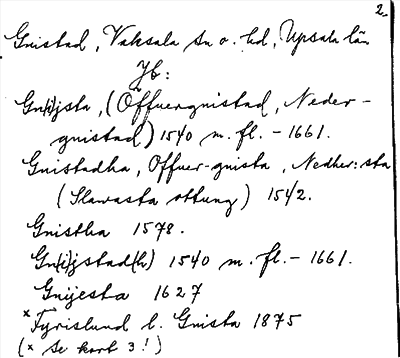 2.
Gnistad, Vaksala sn o. hd, Upsala län
Jb:
Gn(i)jsta, (Öffuergnistad, Neder-
gnistad) 1540 m. fl. - 1661.
Gnistadha, Offuer-gnista, Nedher:sta
(Slawasta ottung) 1542.
Gnistha 1578.
Gn(i)jstad(h) 1540 m. fl. - 1661.
Gnijesta 1627
× Fyrislund l. Gnista 1875
(× Se kort 3!)